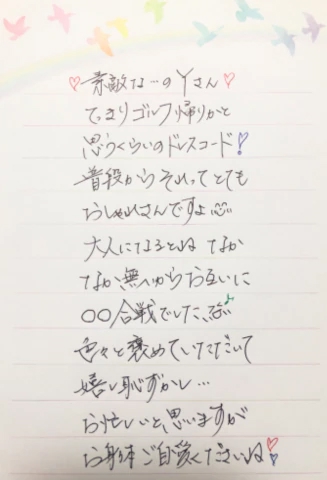 ♡素敵な…のYさん♡
てっきりゴルフ帰りかと
思うくらいのドレスコード!
普段からそれってとても
おしゃれさんですよ
大人になるとね なか
なか無いからお互いに
〇〇合戦でした、
色々と褒めていただいて
嬉し恥ずかし…
お忙しいと思いますが
お身体ご自愛くださいね♡